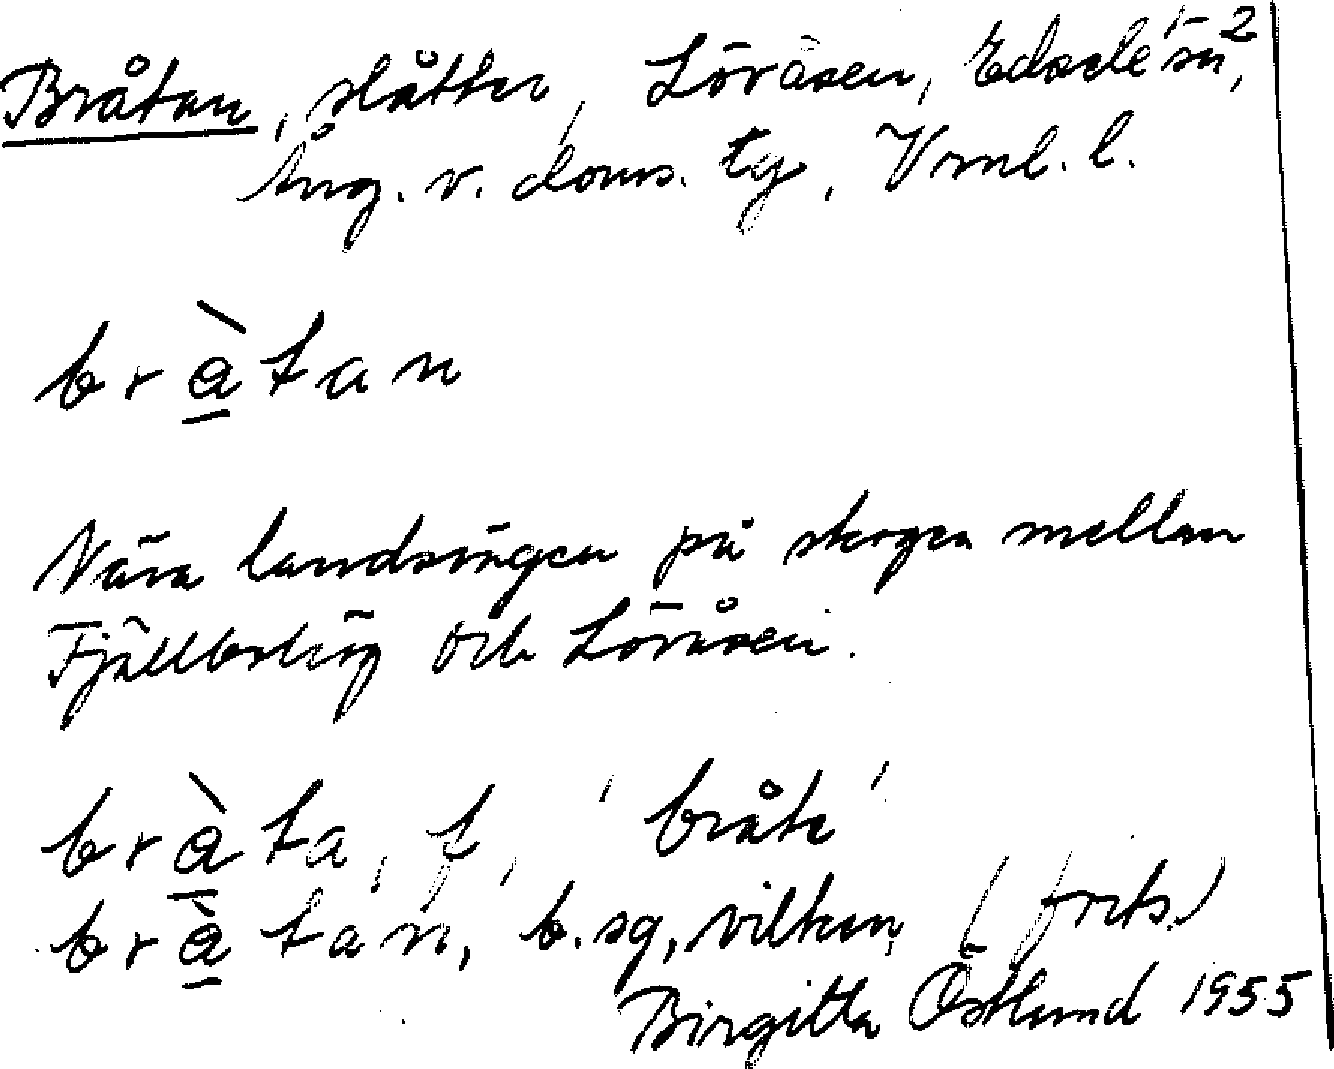 Bråtan, slåtter, Löråsen, Edsele sn²,
Ång. v. doms. tg, Vrnl. l.
brå̀tan
Nära landsvägen på skogen mellan
Fjällbohög och Löråsen.
brå̀ta, f, 'bråte'
brå̀tan, b. sg,
Birgitta Östlund 1955